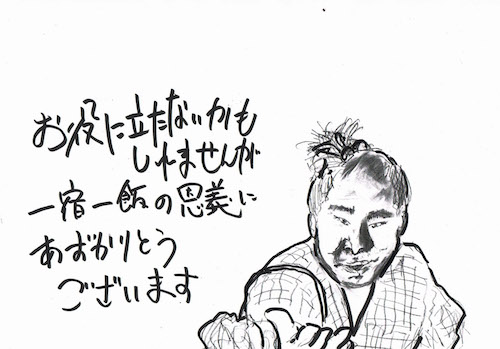 お役に立たないかも
しれませんが
一宿一飯の恩義に
あずかりとう
ございます